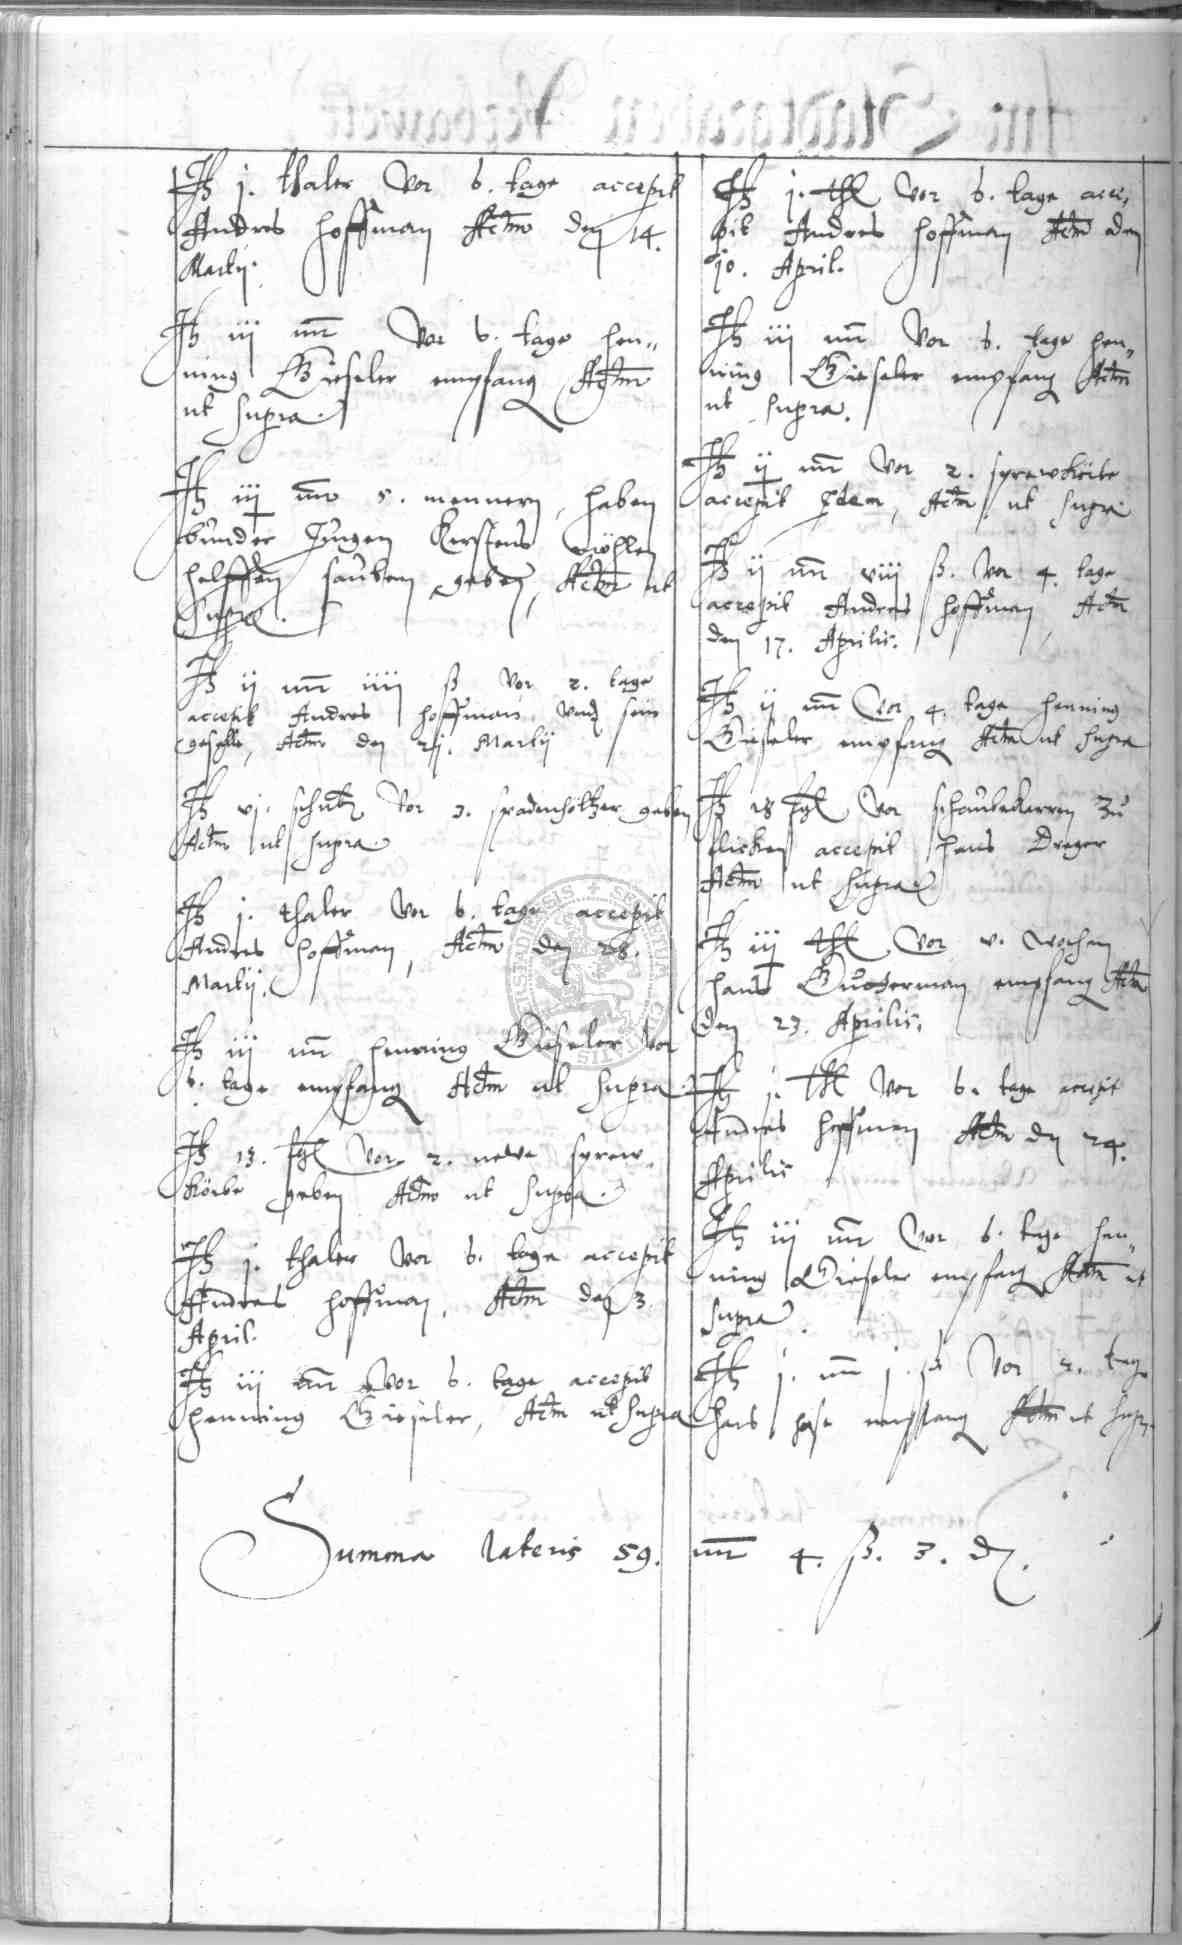 It j. thaler vor 6. tage accepit
Andres Hoffman Actum den 14.
Martij.
It iij mr vor 6. tage Hen„
ning Gieseler empfang Actum
ut supra.
It iij mr 5. mennern, haben
Jurgen Kerstens
helffen geben, Actum ut
supra.
It ij mr iiij ß vor 2. tage
accepit Andres Hoffman und sein
geselle, Actum den 21. Martij
It vj. vor 3. geben
Actum ut supra.
It j. thaler vor 6. tage accepit
Andres Hoffman, Actum den 28.
Martij.
It iij mr Henning Gieseler vor
6. tage empfang Actum ut supra.
It 13. fgl vor 2. newe sprew„
körbe geben Actum ut supra.
It j. thaler vor 6. tage accepit
Andres Hoffman, Actum den 3.
April.
It iij mr vor 6. tage accepit
Henning Gieseler, Actum ut supra
It j. thl vor 6. tage acce„
pit Andres Hoffman Actum den
10. April.
It iij mr vor 6. tage Hen„
ning Gieseler empfang Actum
ut supra.
It ij mr vor 2. sprewkörbe
accepit Idem, Actum ut supra
It ij mr viij ß. vor 4. tage
accepit Andres Hoffman, Actum
den 17. Aprilis.
It ij mr vor 4. tage Henning
Gieseler empfang Actum ut supra
It 18 fgl vor schaubekarren zu
flicken accepit Hans Dreger
Actum ut supra
It iij thl vor v. wochen
Hans empfang Actum
den 23. Aprilis.
It j. thl vor 6. tage accepit
Andres Hoffman Actum den 24.
Aprilis
It iij mr vor 6. tage Hen„
ning Gieseler empfang Actum ut
supra.
It j. mr j. ß vor 2. tage
Hans empfang Actum ut supra
Summa lateris 59. mr 4. ß. 3. d.